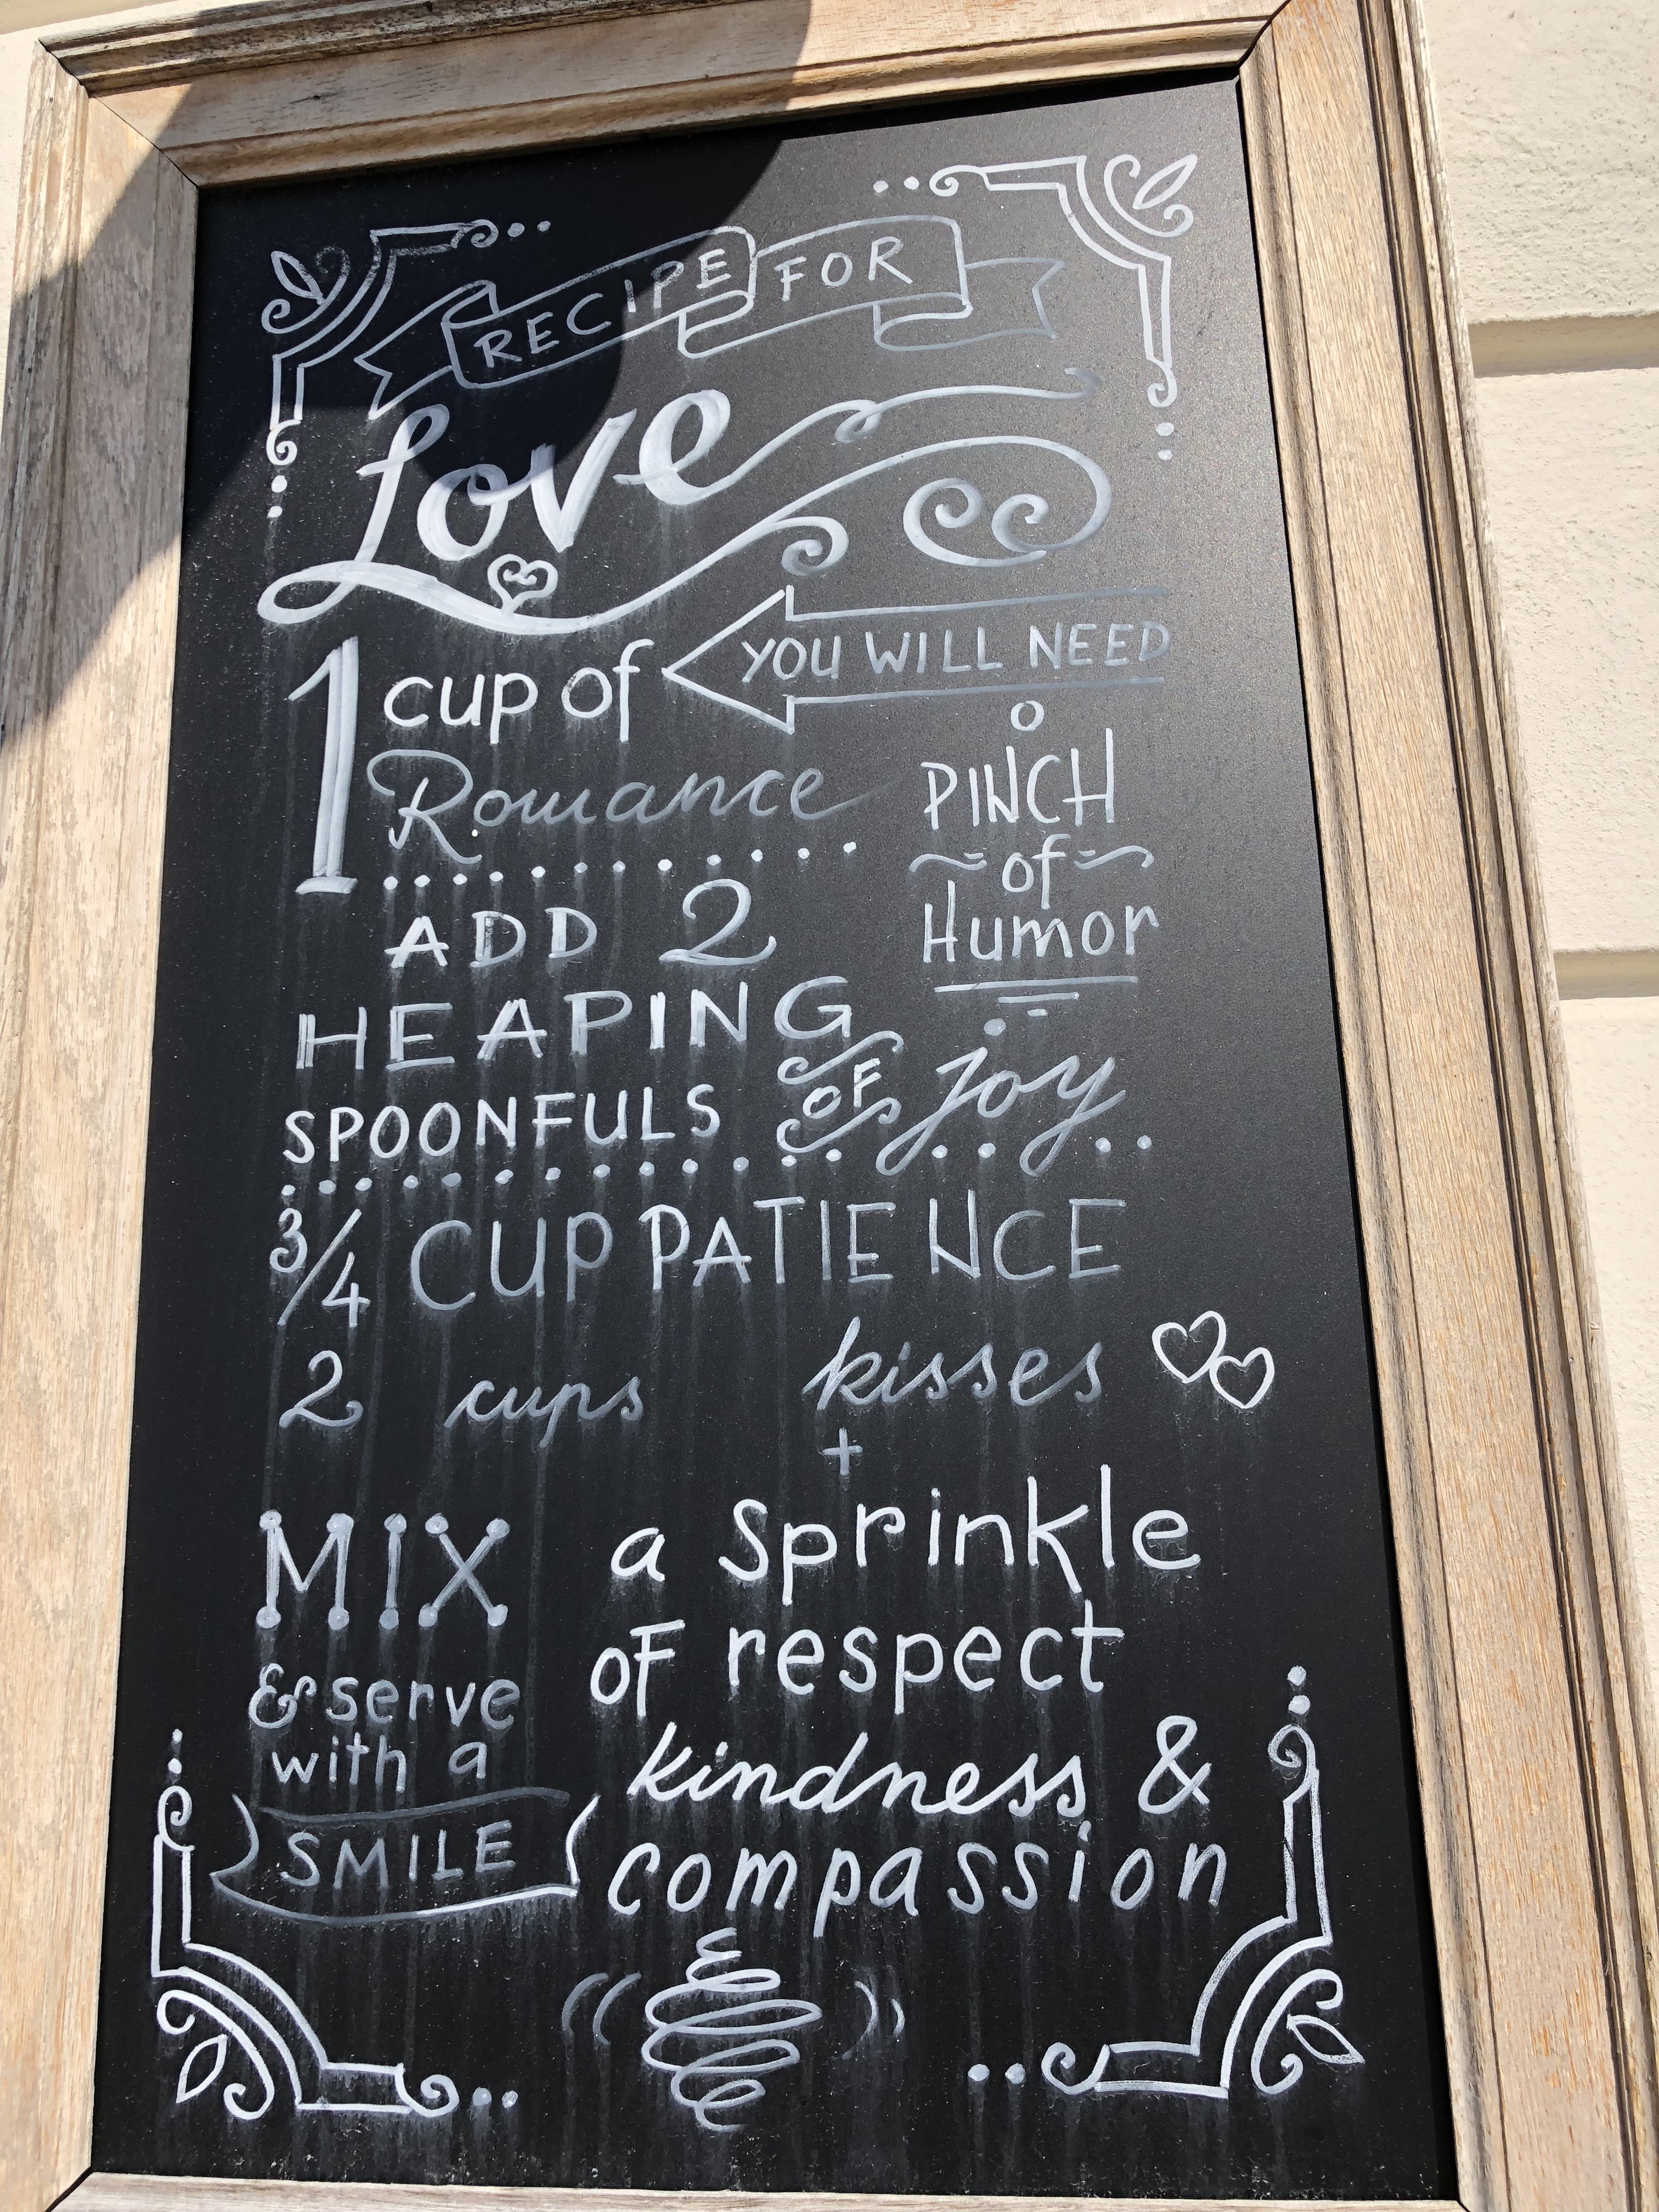 RECIPE FOR
Love
YOU WILL NEED
1 cup of
Romance
PINCH
of
Humor
ADD 2
HEAPING
SPOONFULS OF joy
3/4 CUP PATIENCE
2 cups kisses
+
MIX
& serve
with a
SMILE
a sprinkle
of respect
kindness &
compassion